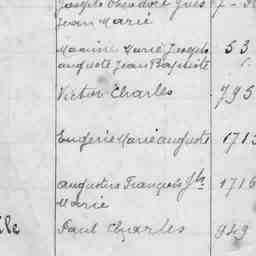 Joseph Théodore Jules 7
Jean Marie
Maxime Marie Joseph 53
auguste Jean Baptiste
Victor Charles 795
Eugénie Marie auguste 1715
augustin François Jh 1716
Marie
Paul Charles 949